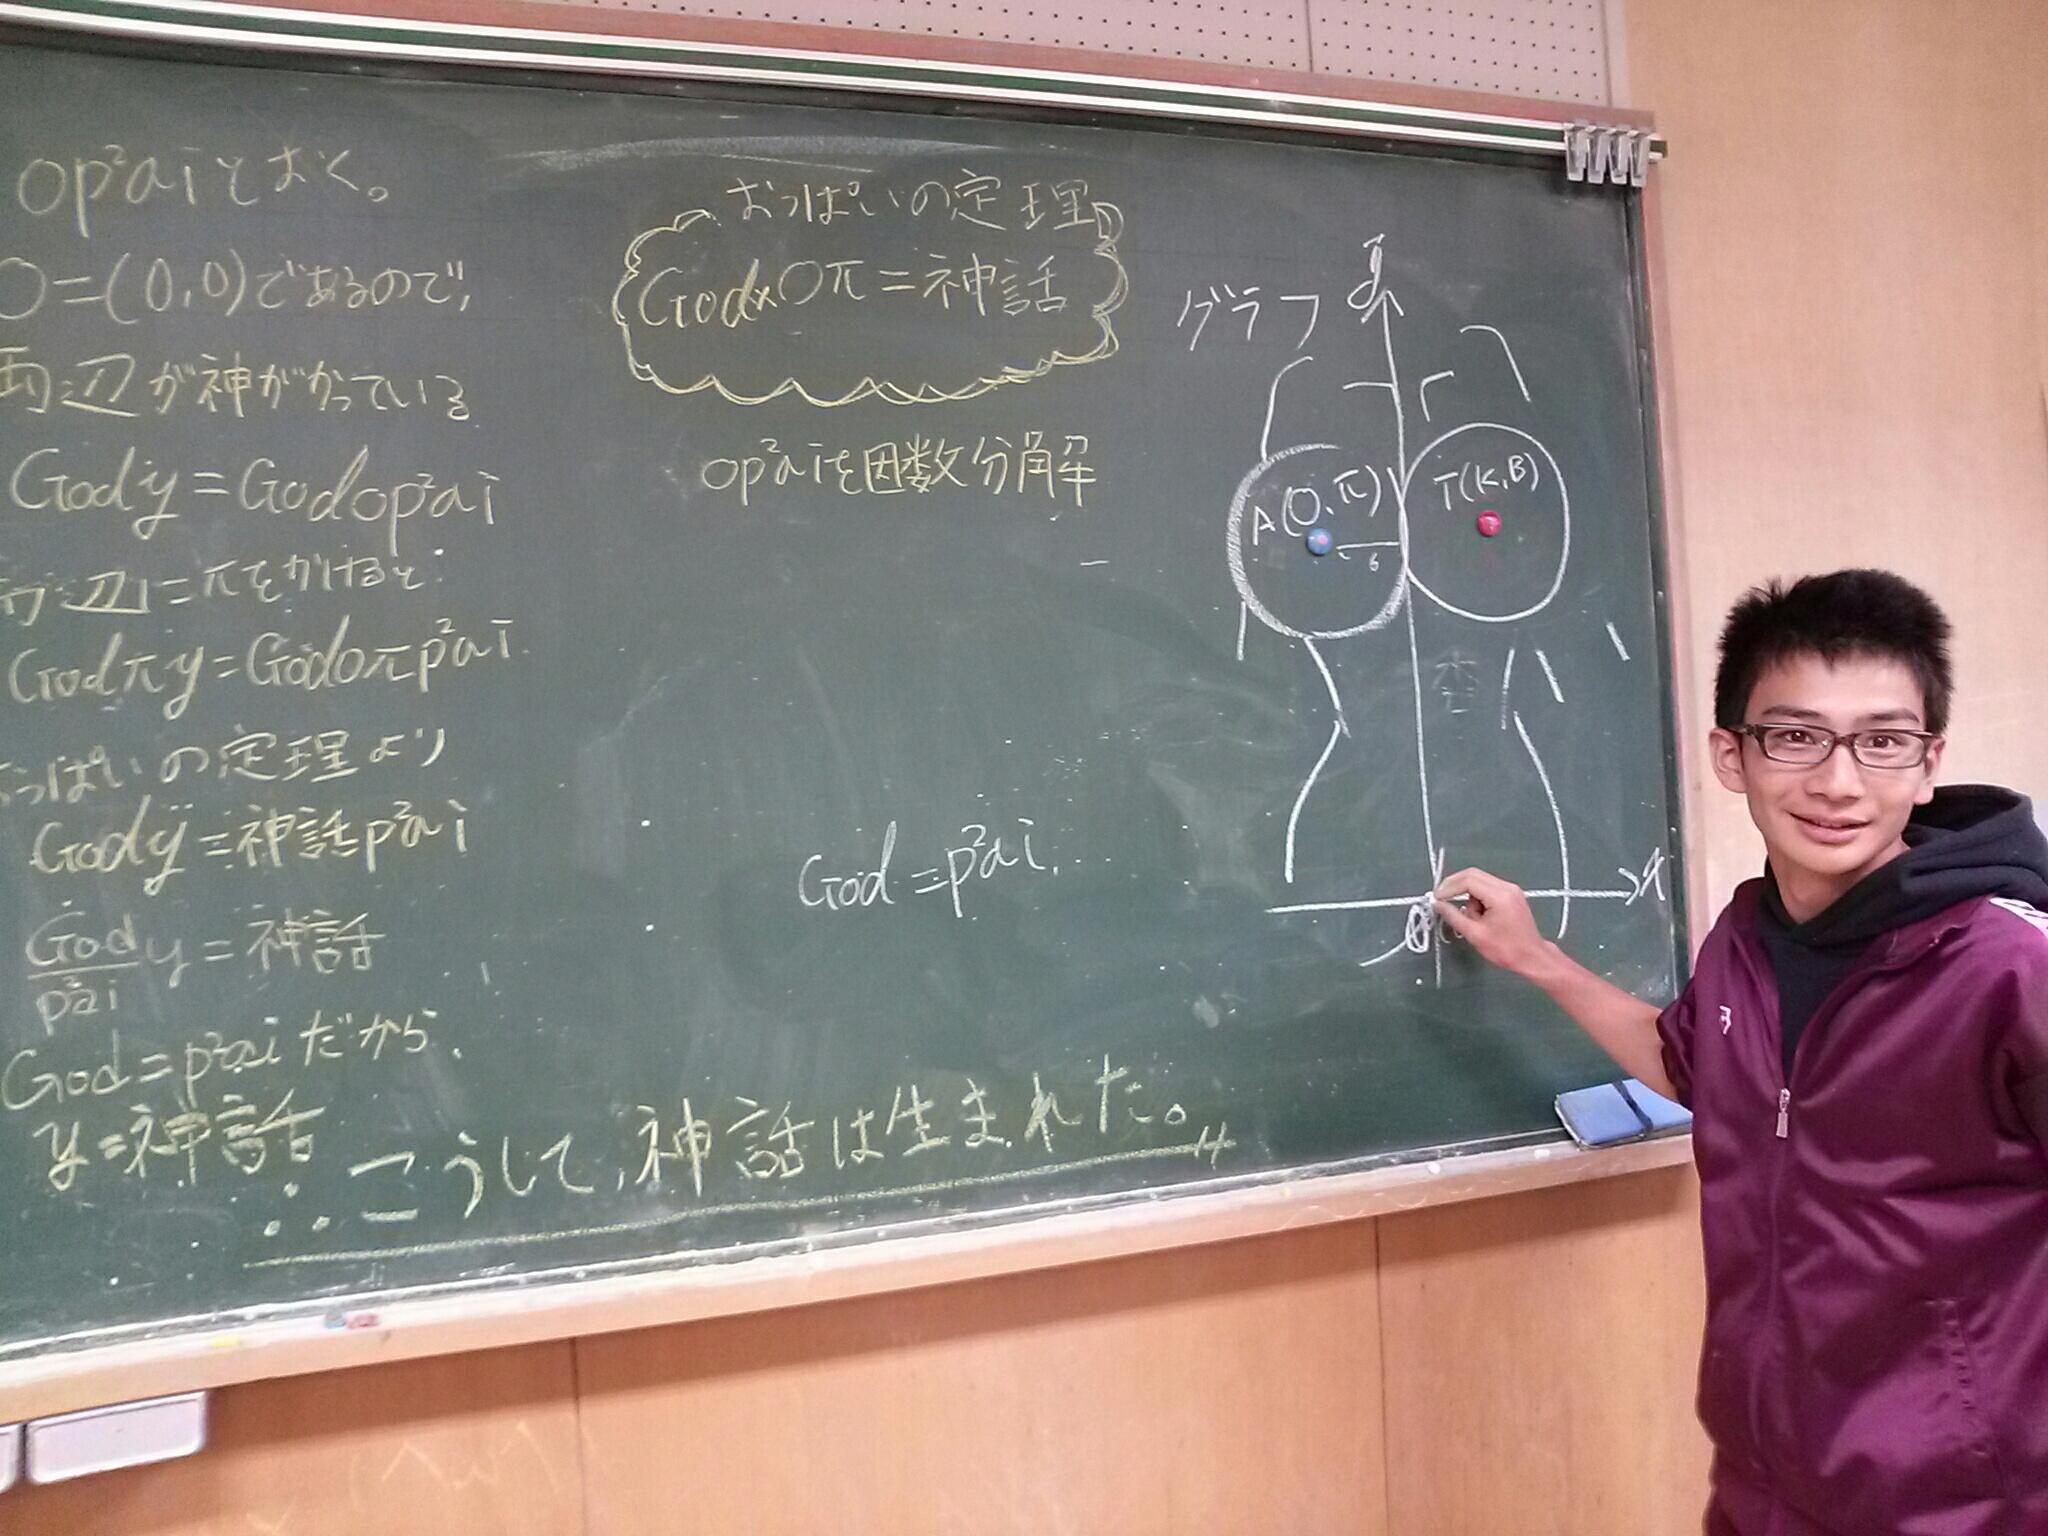 op²aiとおく。
O=(0,0)であるので,
両辺が神がかっている
Gody=Godop²ai
両辺にπをかけると
Godπy=Godoπp²ai
おっぱいの定理より
Gody=神話p²ai
God/p²ai y=神話
God=p²aiだから、
y=神話
∴こうして、神話は生まれた。
おっぱいの定理
God×Oπ=神話
op²aiを因数分解
God=p²ai
グラフ
y
A(O,π)
T(K,B)
6
x
O